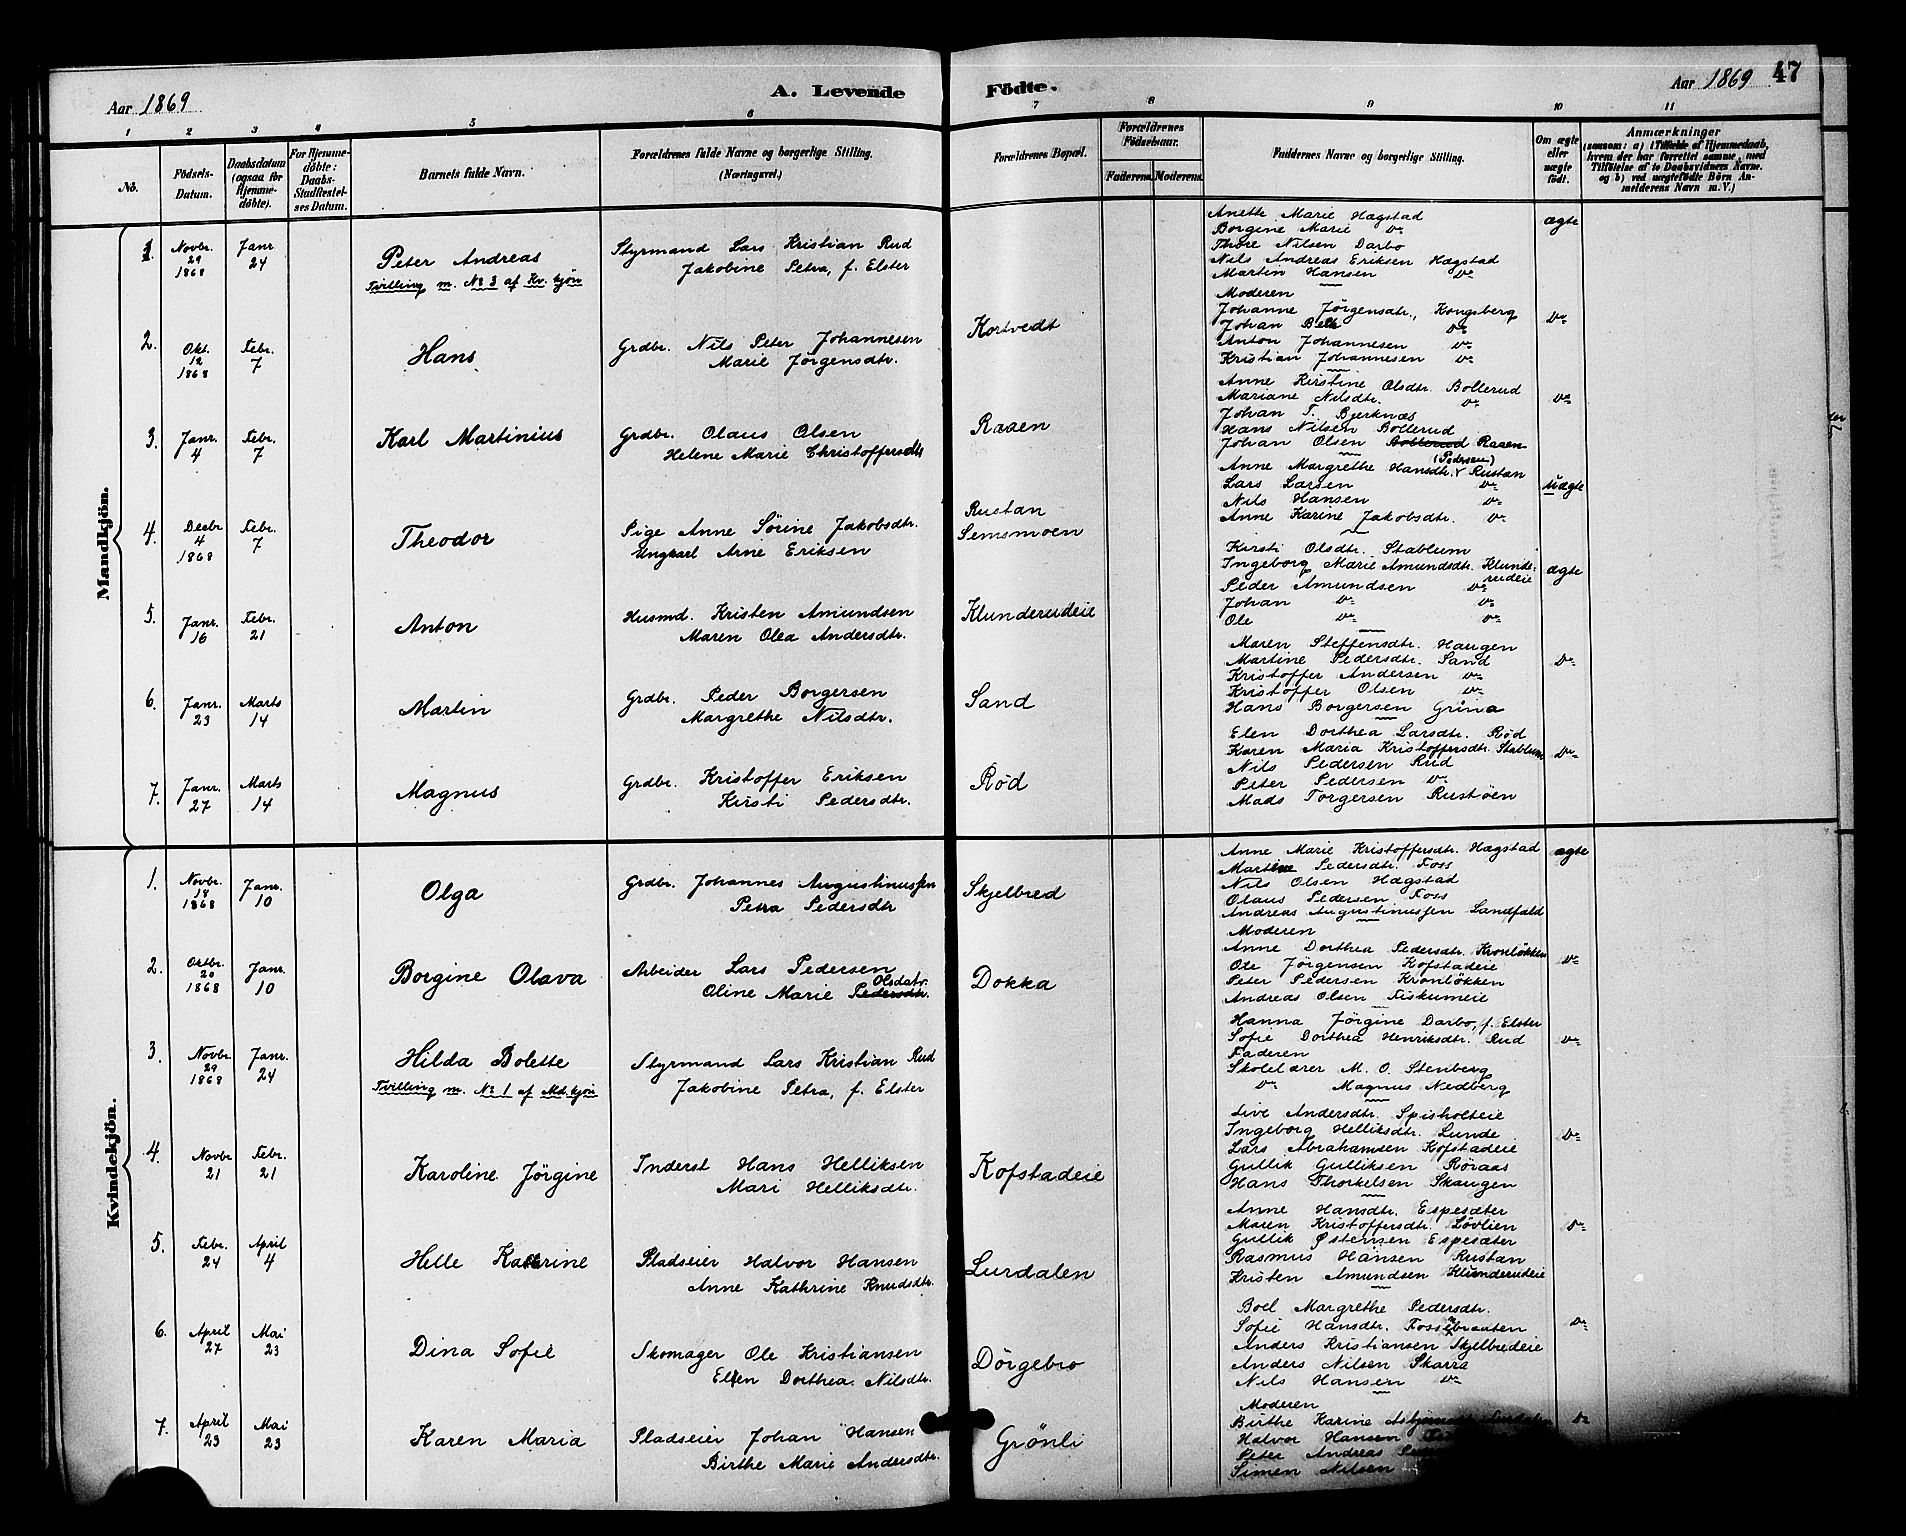 Aar 1869
A. Levende
Födte.
Aar 1869
47
1 2 3 4 5 6 7 8 9 10 11
No.
Födsels-Datum.
Daabsdatum (ogsaa for Hjemme-döbte).
For Hjemme-döbte: Daabs-Stadfestel-ses Datum.
Barnets fulde Navn.
Forældrenes fulde Navne og borgerlige Stilling.
(Næringsvei.)
Forældrenes Bopæl.
Forældrenes Födselsaar.
Faderens. Moderens.
Faddernes Navne og borgerlige Stilling.
Om ægte eller uægte födt.
Anmærkninger
(saasom: a) i Tilfælde af Hjemmedaab, hvem der har forrettet samme, med Tilföielse af to Daabsvidners Navne. og b) ved uægtefödte Börn An-melderens Navn m. V.)
Mandkjön.
1. Novbr. 29 1868
Janr 24
Peter Andreas
Tvilling m. No 3 af Kv. kjön
Styrmand Lars Kristian Rud
Jakobine Petra, f. Elster
Anethe Marie Hægstad
Borgine Marie do
Thore Nilsen Darbo
Nils Andreas Eriksen Hægstad
Martin Hansen do
ægte
2. Okt. 12 1868
Febr. 7
Hans
Grdbr. Nils Peter Johannesen
Marie Jörgensdtr.
Kortvedt
Moderen
Johanne Jörgensdtr., Kongsberg
Johan Beck do
Anton Johannesen do
Kristian Johannesen do
do
3. Janr. 4
Febr. 7
Karl Martinius
Grdbr. Olaus Olsen
Helene Marie Christoffersdtr
Raaen
Anne Kirstine Olsdtr. Bollerud
Mariane Nilsdtr. do
Johan T. Bjerknæs
Hans Nilsen Bollerud
Johan Olsen Bollerud Raaen
do
4. Decbr 4 1868
Febr. 7
Theodor
Pige Anne Sörine Jakobsdtr.
Ungkarl Arne Eriksen
Rustan
Semsmoen
(Pedersen)
Anne Margrethe Hansdtr. Rustan
Lars Larsen do
Nils Hansen do
Anne Karine Jakobsdtr. do
uægte
5. Janr. 16
Febr. 21
Anton
Husmd. Kristen Amundsen
Maren Olea Andersdtr.
Klunderudeie
Kirsti Olsdtr. Stablum
Ingeborg Marie Amundsdtr. Klunde-rudeie
Peder Amundsen do
Johan do do
Ole do do
ægte
6. Janr. 23
Marts 14
Martin
Grdbr. Peder Borgersen
Margrethe Nilsdtr.
Sand
Maren Steffensdtr. Haugen
Martine Pedersdtr. Sand
Kristoffer Andersen do
Kristoffer Olsen do
Hans Borgersen Grina
do
7. Janr. 27
Marts 14
Magnus
Grdbr. Kristoffer Eriksen
Kirsti Pedersdtr.
Röd
Elen Dorthea Larsdtr. Röd
Karen Maria Kristoffersdtr. Stablum
Nils Pedersen Rud
Peter Pedersen do
Mads Torgersen Rustöen
do
Kvindekjön.
1. Novbr. 18 1868
Janr. 10
Olga
Grdbr. Johannes Augustinussen
Petra Pedersdtr
Skjelbred
Anne Marie Kristoffersdtr. Hægstad
Martine Pedersdtr. Foss
Nils Olsen Hægstad
Olaus Pedersen Foss
Andreas Augustinussen Landfald
ægte
2. Octbr. 20 1868
Janr. 10
Borgine Olava
Arbeider Lars Pedersen
Oline Marie Pedersdtr. Olsdatr.
Dokka
Moderen
Anne Dorthea Pedersdtr. Kronlökken
Ole Jörgensen Kofstadeie
Peter Pedersen Kronlökken
Andreas Olsen Fiskumeie
do
3. Novbr. 29 1868
Janr. 24
Hilda Bolette
Tvilling m. No 1 af Md. kjön
Styrmand Lars Kristian Rud
Jakobine Petra, f. Elster
Hanna Jörgine Darbo, f. Elster
Sofie Dorthea Henriksdtr. Rud
Faderen
Skolelærer M. O. Stenberg
do Magnus Nedberg
do
4. Novbr 21
Febr. 21
Karoline Jörgine
Inderst Hans Helliksen
Mari Helliksdtr.
Kofstadeie
Live Andersdtr. Spisholteie
Ingeborg Helliksdtr. Lunde
Lars Abrahamsen Kofstadeie
Gullik Gulliksen Röraas
Hans Thorkelsen Skaugen
do
5. Febr. 24
April 4
Helle Kathrine
Pladseier Halvor Hansen
Anne Kathrine Knudsdtr.
Lurdalen
Anne Hansdtr. Espesæter
Maren Kristoffersdtr. Lövlien
Gullik Østensen Espesæter
Rasmus Hansen Rustan
Kristen Amundsen Klunderudeie
do
6. April 27
Mai 23
Dina Sofie
Skomager Ole Kristiansen
Ellen Dorthea Nilsdtr.
Dörgebro
Boel Margrethe Pedersdtr.
Sofie Hansdtr. Fossebraaten
Anders Kristiansen Skjelbredeie
Anders Nilsen Skarra
Nils Hansen do
do
7. April 23
Mai 23
Karen Maria
Pladseier Johan Hansen
Birthe Marie Andersdtr.
Grönli
Moderen
Birthe Karine Lurdalen
Halvor Hansen
Peter Andreas
Simen Nilsen
do